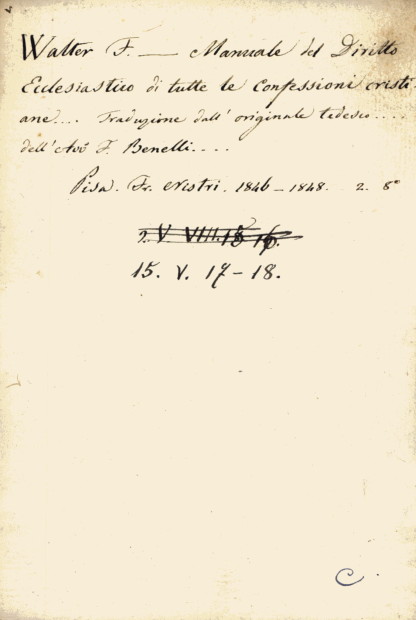 Walter F. — Manuale del Diritto
Ecclesiastico di tutte le confessioni cristi-
ane.... Traduzione dall' originale tedesco.....
dell'Avv F. Benelli....
Pisa. Fr. Nistri. 1846-1848. 2. 8°
2. V VIII. 
15. V. 17-18.
C.